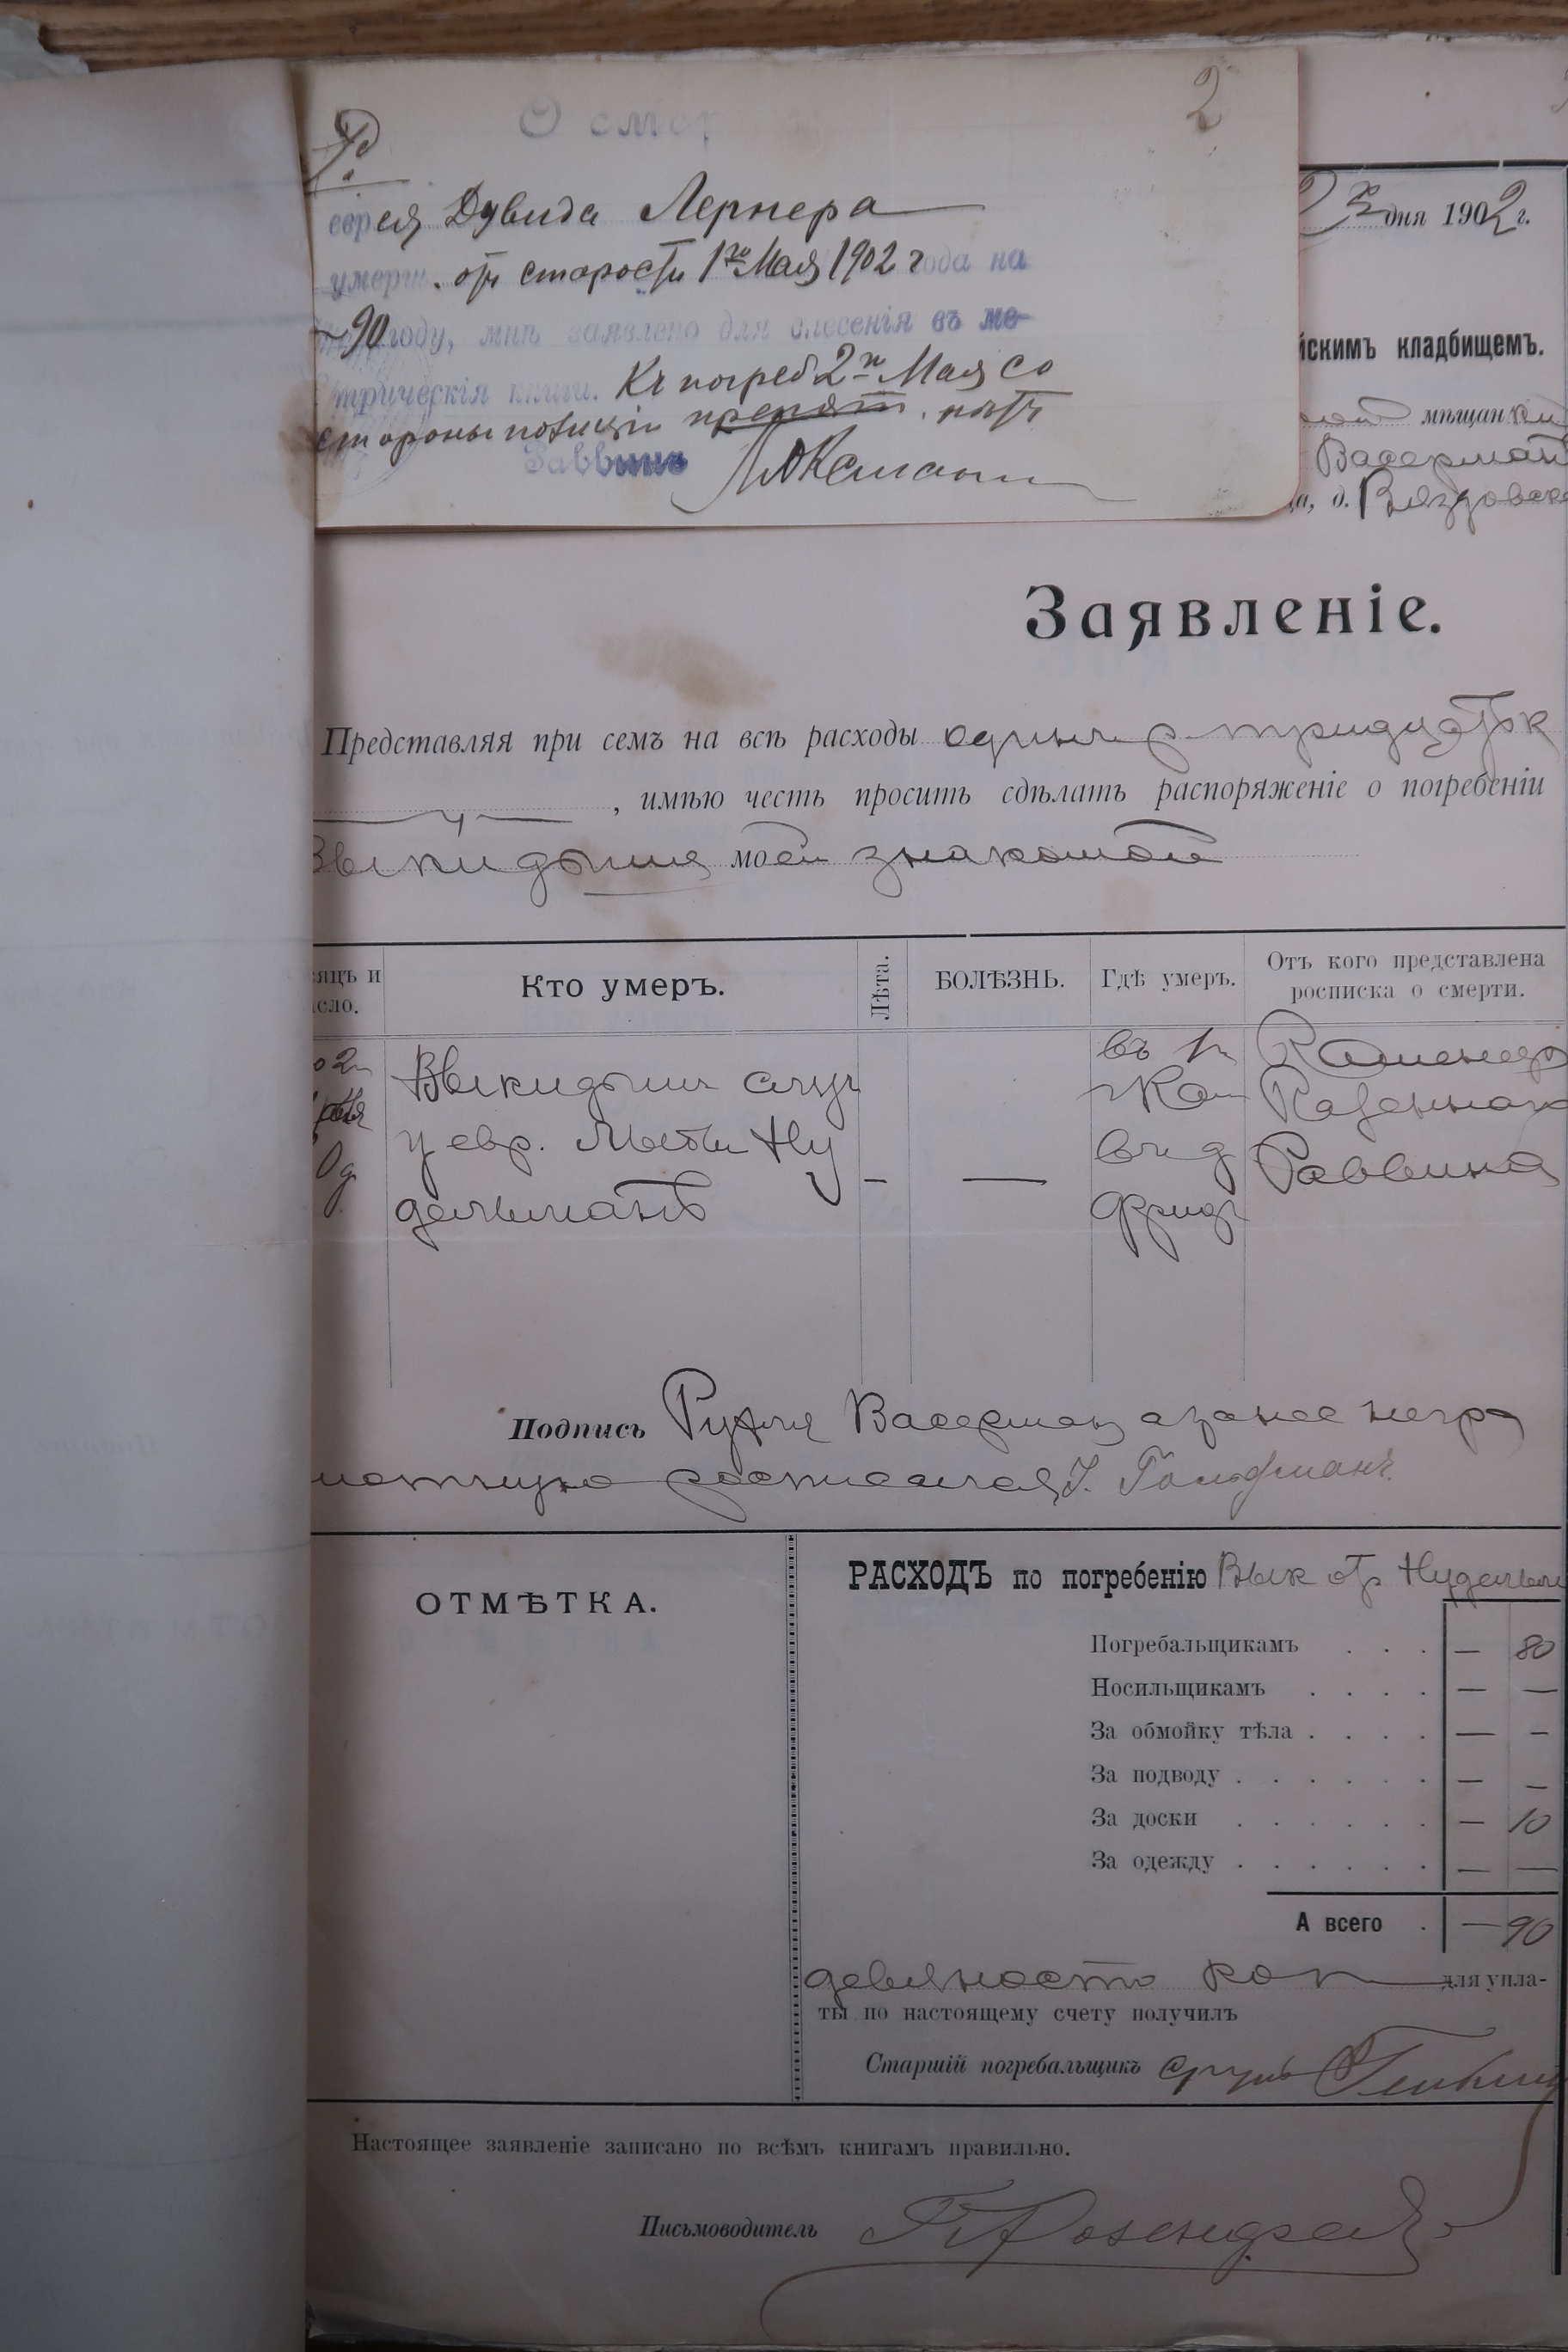 О смер
2
еврея Дувида Лернера
умерш. отъ старости 1го Мая 1902 года на
90 году, мнѣ заявлено для внесенія въ ме-
трическія книги. Къ погреб 2го Мая со
стороны полиціи препят. нѣтъ
Раввинъ
дня 1902 г.
йскимъ кладбищемъ.
мѣщанки
Васерман
а, д.
Заявленіе.
Представляя при семъ на всѣ расходы одинъ р тридцать к
, имѣю честь просить сдѣлать распоряженіе о погребеніи
Выкидыша моей знакомой
яцъ и
сло.
Кто умеръ.
Лѣта.
БОЛѢЗНЬ.
Гдѣ умеръ.
Отъ кого представлена
росписка о смерти.
Выкидышъ случ
у евр. Ну
дельманъ
— —
въ д
Фридъ
Казеннаго
Раввина
Подпись Васерман а за нее негра
мотную росписался Гольдманъ.
ОТМѢТКА.
РАСХОДЪ по погребенію Вык отъ Нудельм
Погребальщикамъ . . . — 80
Носильщикамъ . . . . — —
За обмойку тѣла . . . . — —
За подводу . . . . . . — —
За доски . . . . . . — 10
За одежду . . . . . . — —
А всего . — 90
девяносто коп для упла-
ты по настоящему счету получилъ
Старшій погребальщикъ
Настоящее заявленіе записано по всѣмъ книгамъ правильно.
Письмоводитель